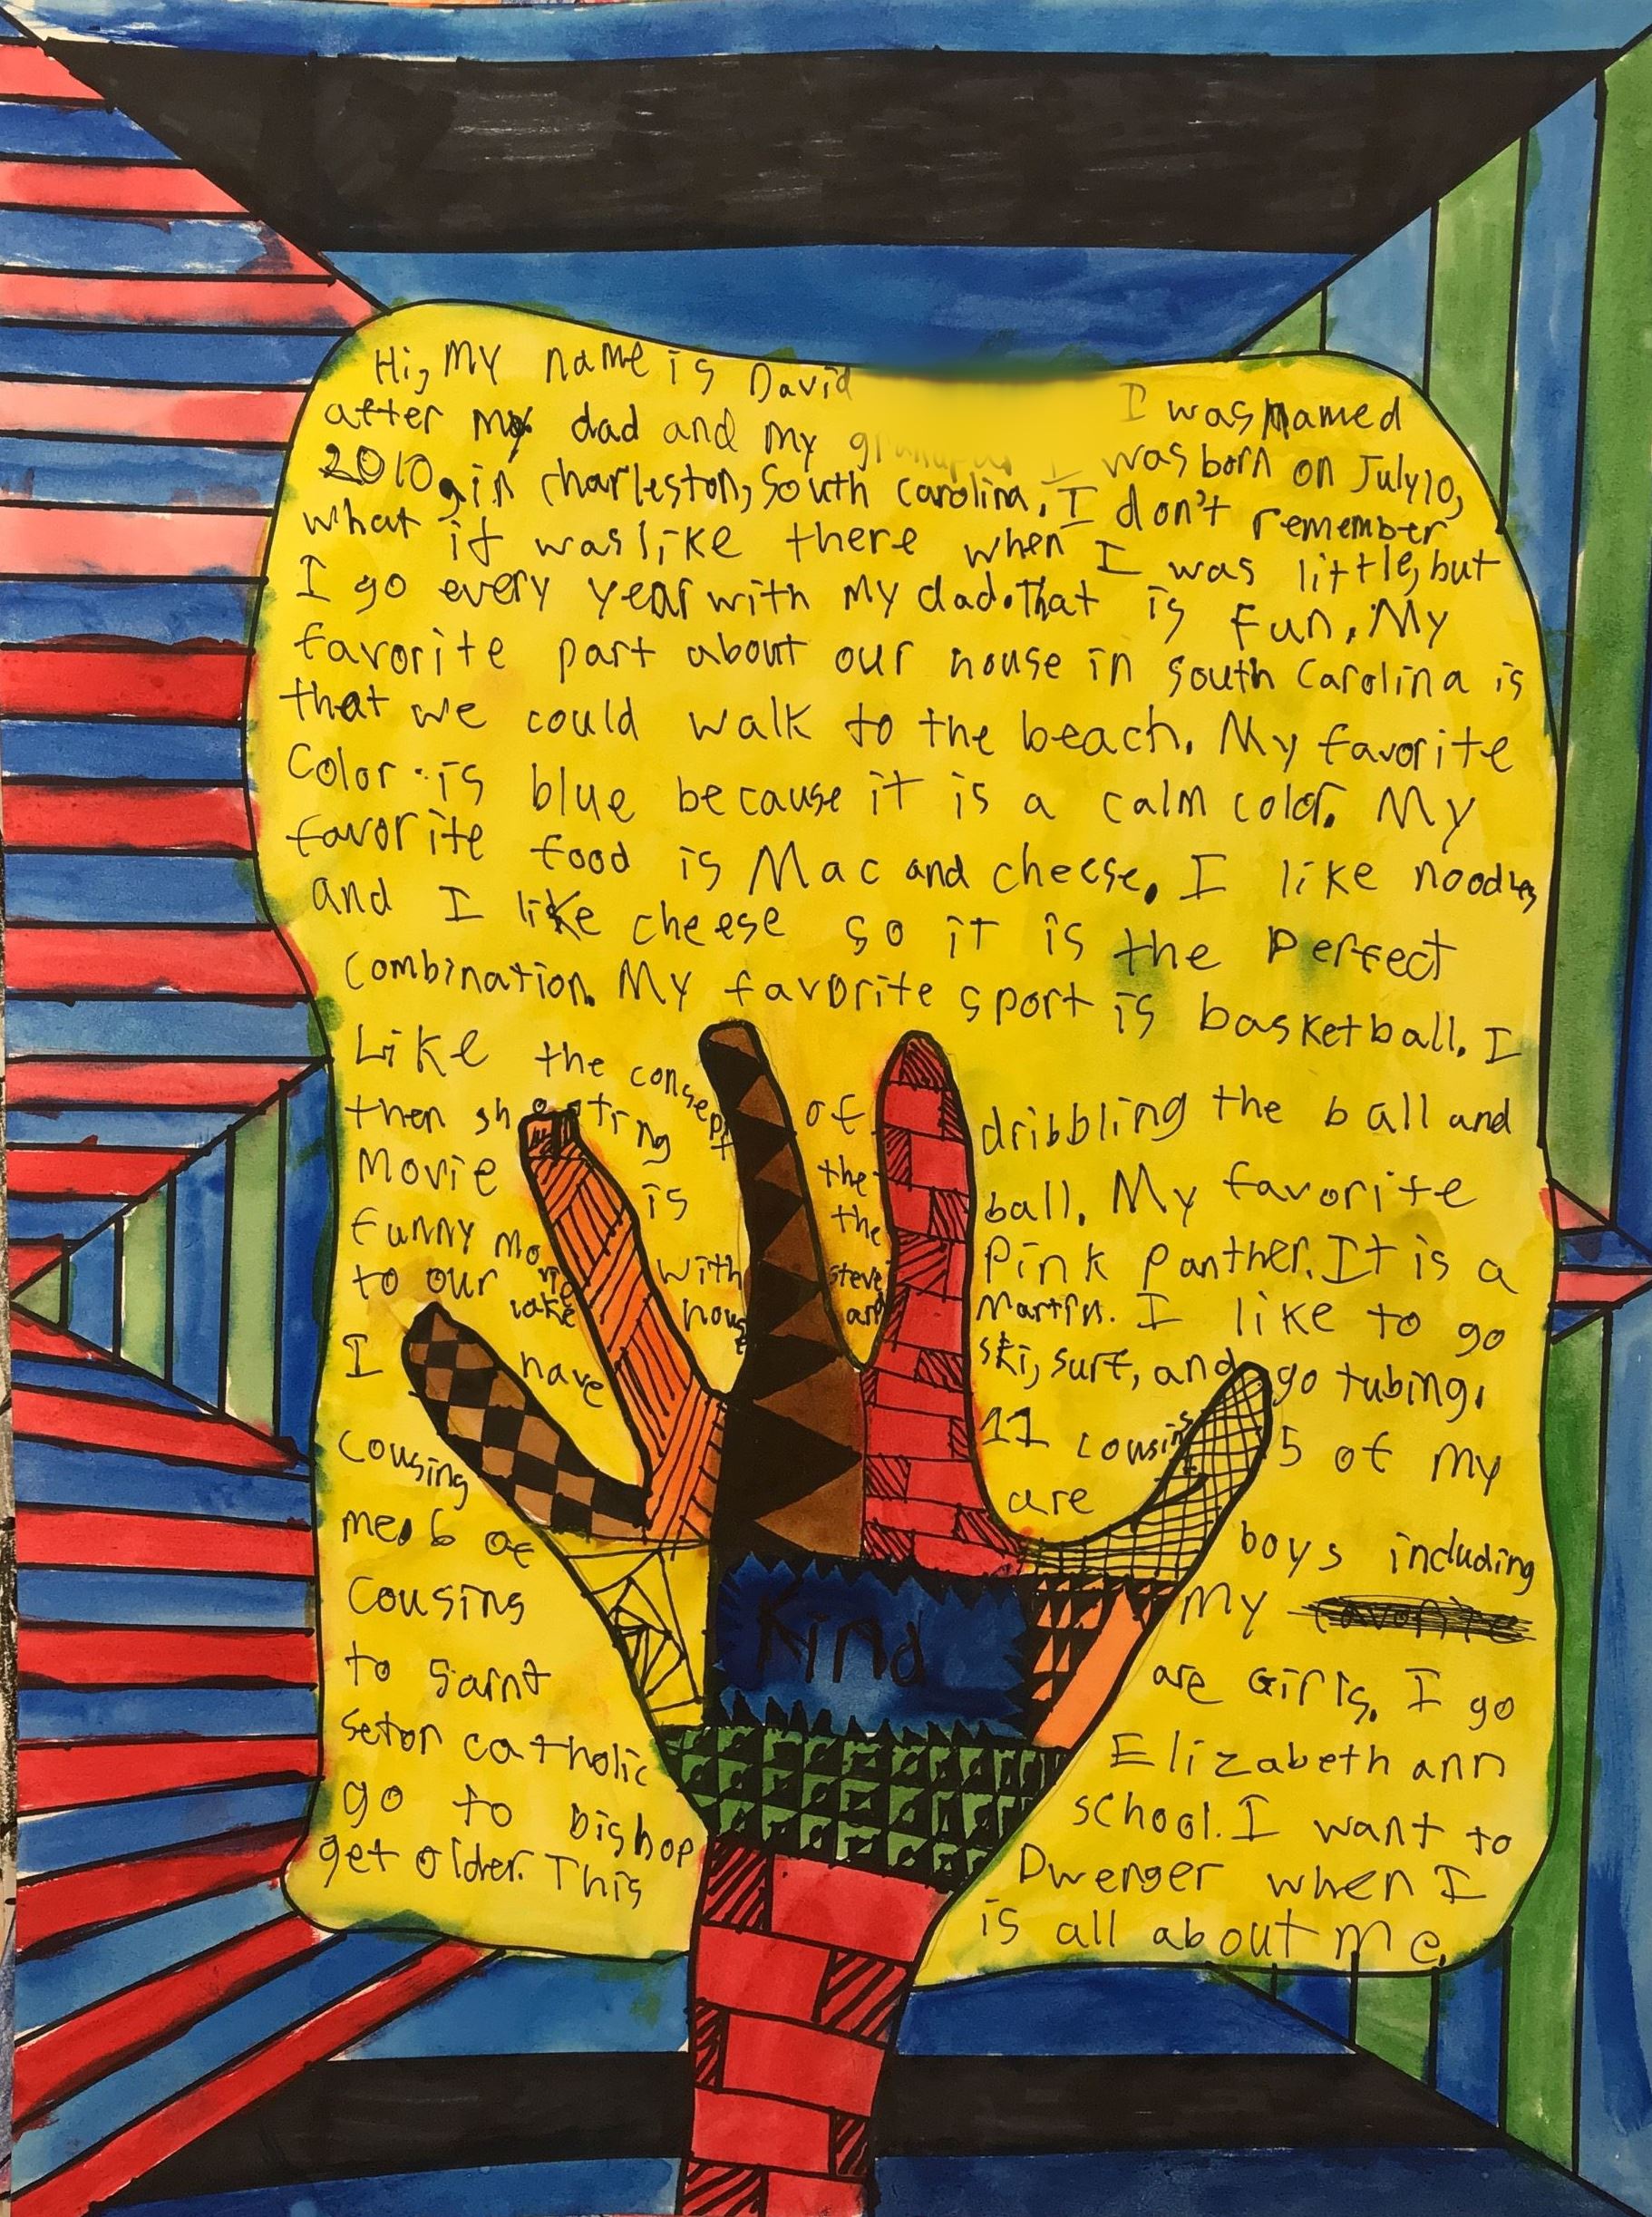 Hi, My name is David I was named
after my dad and my I was born on July 10,
2010, in charleston, South carolina. I don't remember
what it was like there when I was little, but
I go every year with my dad. That is fun. My
favorite part about our house in South Carolina is
that we could walk to the beach. My favorite
Color is blue because it is a calm color. My
favorite food is Mac and cheese. I like noodles
and I like cheese so it is the perfect
combination. My favorite sport is basketball. I
Like the consept of dribbling the ball and
then shooting the ball. My favorite
Movie is the Pink Panther. It is a
funny movie with steve Martin. I like to go
to our lake house and ski, surf, and go tubing.
I have 11 cousins
Cousing are 5 of my
me. 6 of boys including
Cousins My favorite
to Saint are Girls. I go
Seton catholic Elizabeth ann
go to bishop school. I want to
get older. This Dwenger when I
is all about me.
Kind